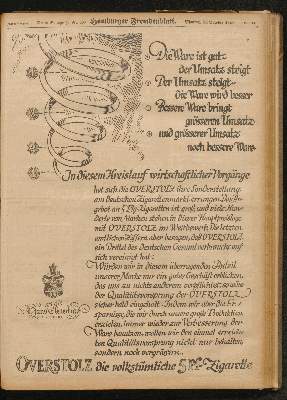 Hamburger Fremdenblatt.
Die Ware ist gut:
der Umsatz steigt
Der Umsatz steigt:
die Ware wird besser
Bessere Ware bringt
grösseren Umsatz
und grösserer Umsatz
noch bessere Ware
In diesem Kreislauf wirtschaftlicher Vorgänge
hat sich die OVERSTOLZ ihre Sonderstellung
am Deutschen Zigarettenmarkt errungen. Die
an 5 Pfg. Zigaretten ist groß, und viele
derte von Marken stehen in dieser Hauptpreislage
mit OVERSTOLZ im Wettbewerb. Die letzten
amtlichen Ziffern aber besagen, daß OVERSTOLZ
ein Drittel des Deutschen Gesamtverbrauchs auf
sich vereinigt hat:
Würden wir in diesem überragenden Anteil
unserer Marke nur ein guter Geschäft erblicken,
das uns zu nichts anderem verpflichtet, so wäre
der Qualitätsvorsprung der OVERSTOLZ
sicher bald eingeholt. Indem wir aber die Er-
sparnisse, die wir durch unsere große Produktion
erzielen, immer wieder zur Verbesserung der
Ware benutzen, wollen wir den einmal erreich-
ten Qualitätsvorsprung nicht nur behalten,
sondern noch vergrößern.
OVERSTOLZ die volkstümliche 5 Pf. Zigarette